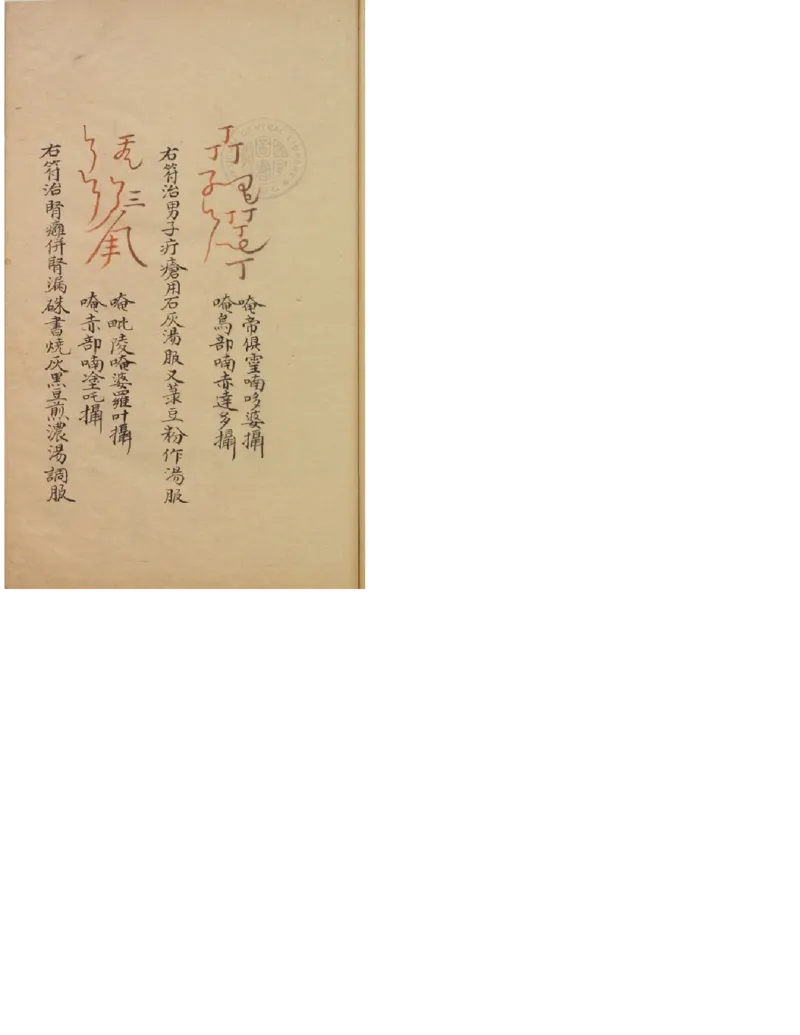 唵帝俱霊喃哆婆攝
唵烏部喃赤達多攝
右符治男子疔瘡用石灰湯服又菉豆粉作湯服
唵毗陵唵婆羅叶攝
唵赤部喃塗吒攝
右符治腎癰併腎漏硃書燒灰黑豆煎濃湯調服